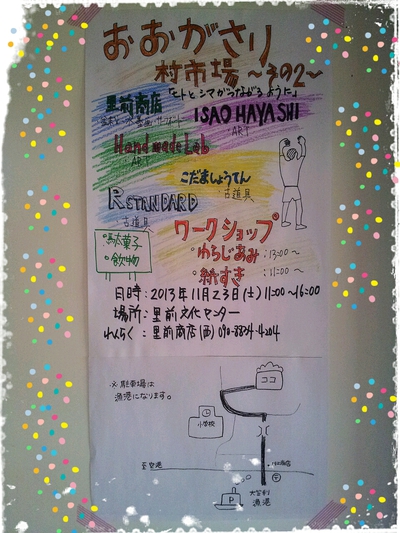 おおがさり
村市場 ～その2～
「ヒトとシマがつながるように」
里前商店
ISAO HAYASHI
・ART
Handmade Lab
・ART
こだましょうてん
・古道具
R STANDARD
・古道具
ワークショップ
・駄菓子
・飲物
・わらじあみ：13:00～
・紙すき：11:00～
日時：2013年11月23日(土)11:00～16:00
場所：里前文化センター
れんらく：里前商店(西)090-8834-4204
ココ
※駐車場は
漁港になります。
小学校
至空港
P
漁港